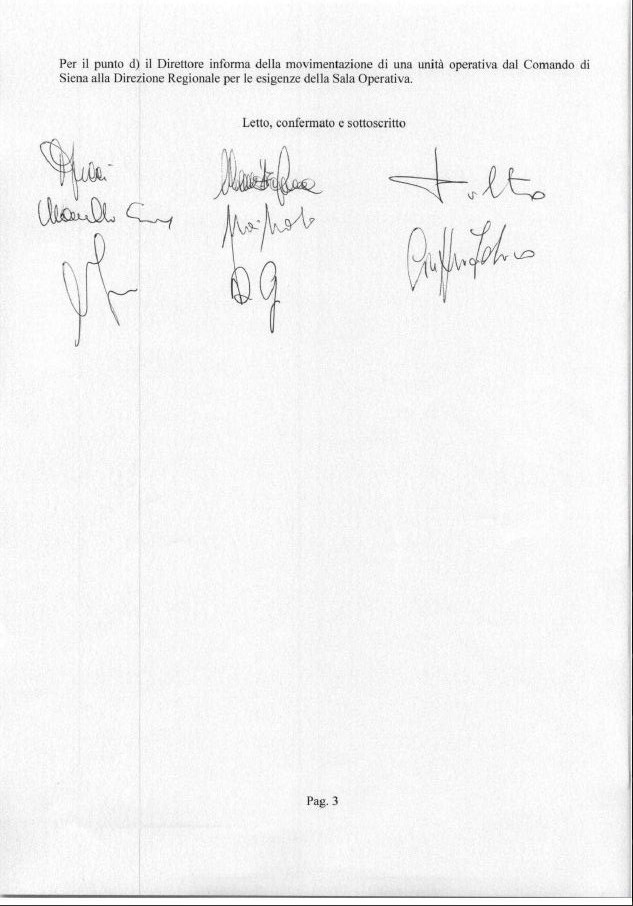 Per il punto d) il Direttore informa della movimentazione di una unità operativa dal Comando di
Siena alla Direzione Regionale per le esigenze della Sala Operativa.
Letto, confermato e sottoscritto
Pag. 3